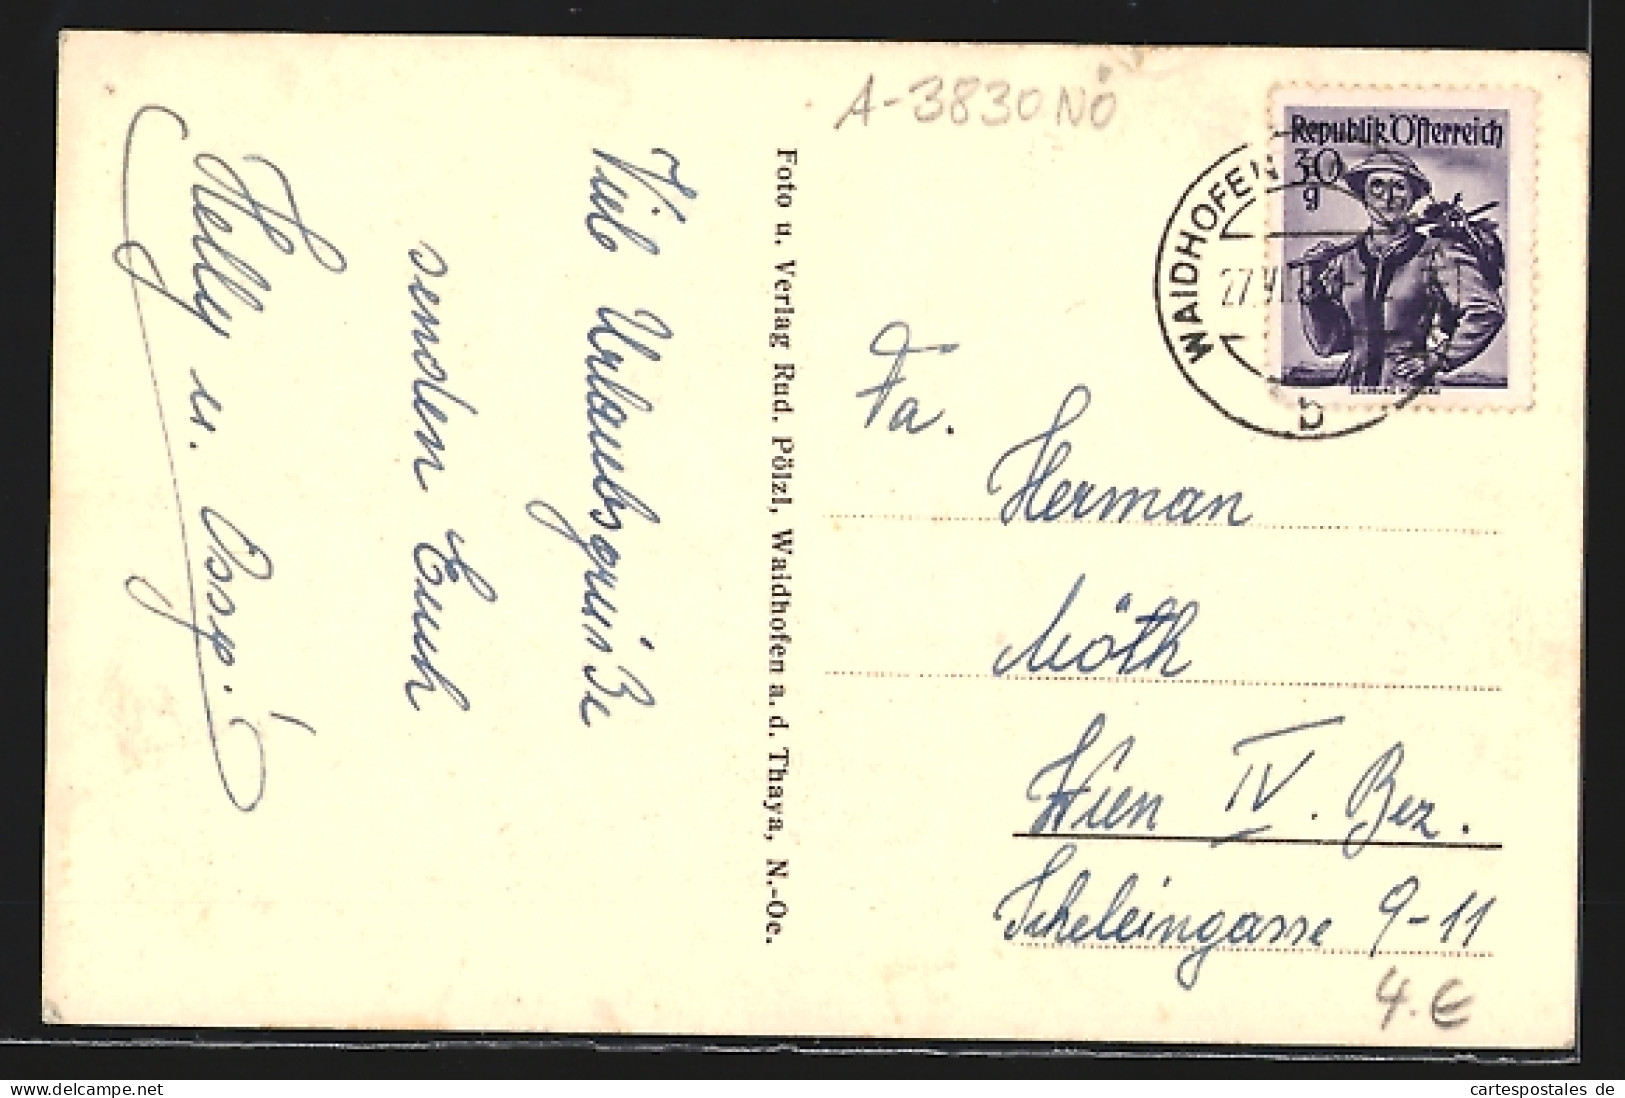 A-3830 NÖ
Republik Österreich
30
g
WAIDHOFEN
b
Viele Urlaubsgrüße
senden Euch
Helly u.
Foto u. Verlag Rud. Pölzl, Waidhofen a. d. Thaya, N.-Oe.
Fa.
Herman
Möth
Wien IV. Bez.
Scheleingasse 9-11
4.€
delcampe.net
cartespostales de